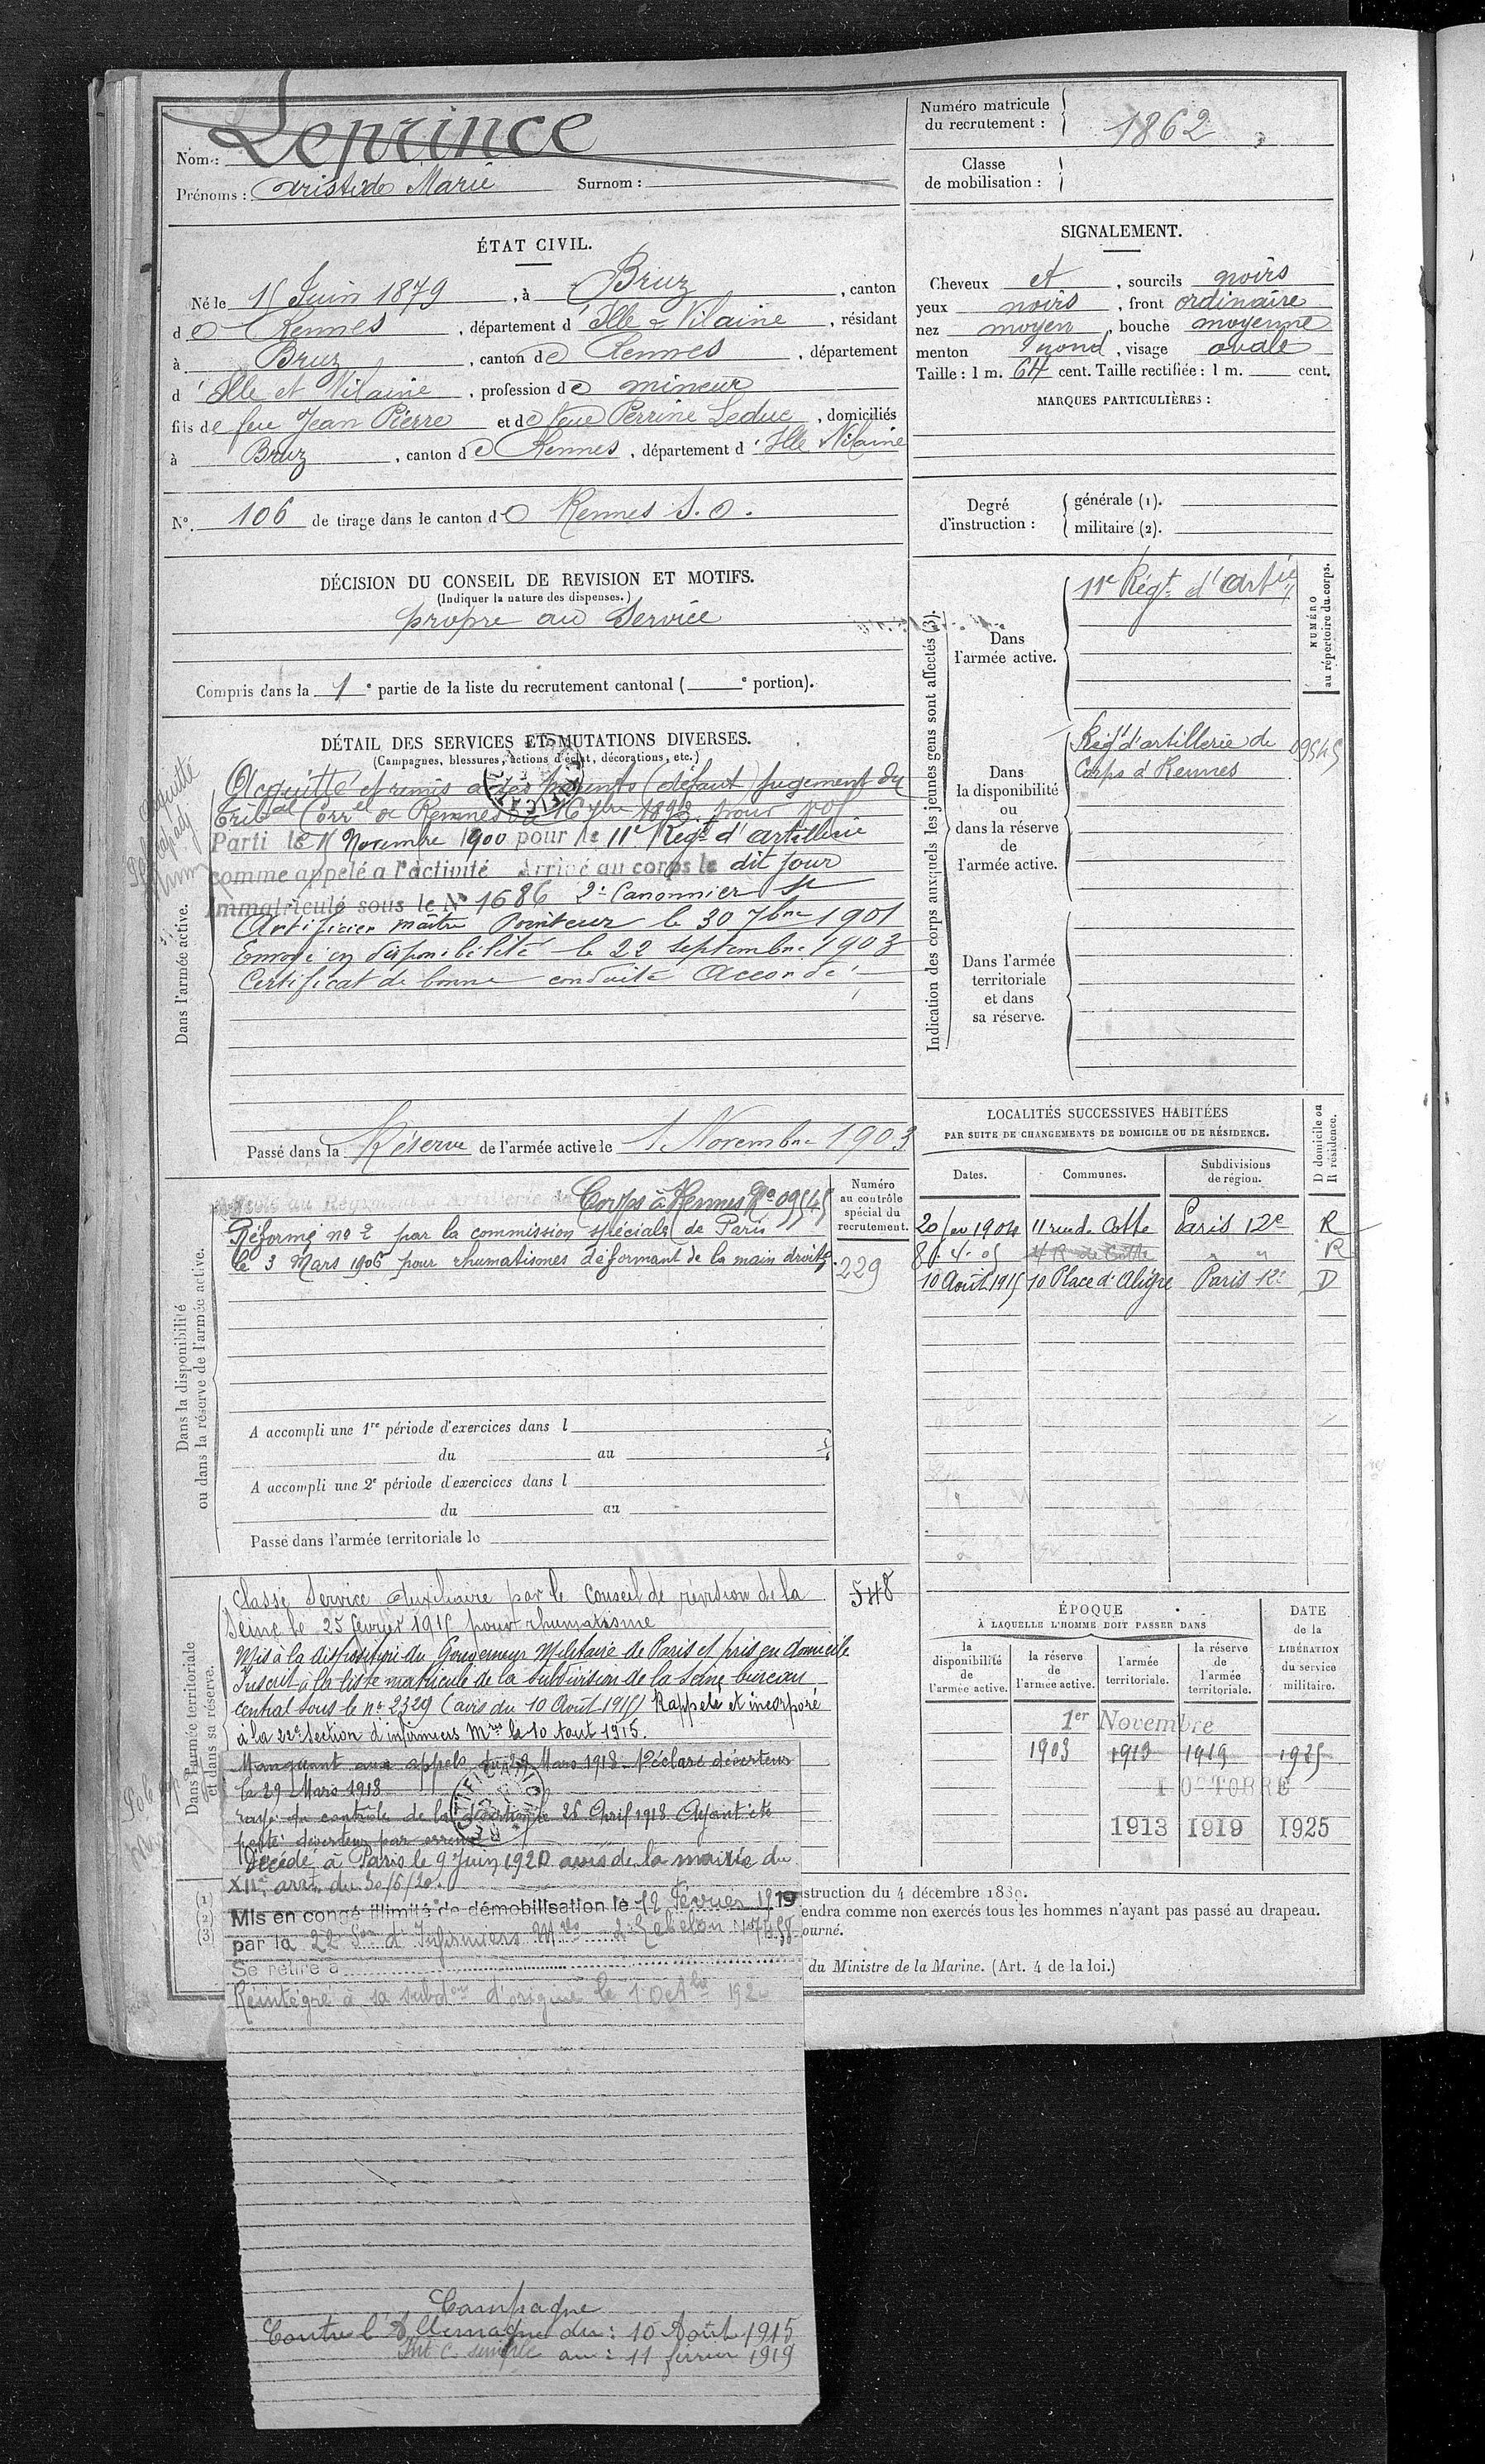 Nom : Leprince
Prénoms : Aristide Marie Surnom :
Numéro matricule du recrutement : 1862
Classe de mobilisation :
ÉTAT CIVIL.
Né le 15 Juin 1879, à Bruz, canton
de Rennes, département d'Ille & Vilaine, résidant
à Bruz, canton de Rennes, département
d'Ille et Vilaine, profession de mineur
fils de feu Jean Pierre et de feue Perrine Leduc, domiciliés
à Bruz, canton de Rennes, département d'Ille & Vilaine
N° 106 de tirage dans le canton de Rennes S. O.
SIGNALEMENT.
Cheveux et, sourcils noirs
yeux noirs, front ordinaire
nez moyen, bouche moyenne
menton rond, visage ovale
Taille : 1 m. 64 cent. Taille rectifiée : 1 m. cent.
MARQUES PARTICULIÈRES :
Degré d'instruction :
générale (1).
militaire (2).
DÉCISION DU CONSEIL DE REVISION ET MOTIFS.
(Indiquer la nature des dispenses.)
propre au Service
Compris dans la 1e partie de la liste du recrutement cantonal ( e portion).
DÉTAIL DES SERVICES ET MUTATIONS DIVERSES.
(Campagnes, blessures, actions d'éclat, décorations, etc.)
Dans l'armée active.
Acquitté et remis à ses parents (défaut) jugement du
Tribal Correl de Rennes du 16 pour vol
Parti le Novembre 1900 pour le 11e Régt d'artillerie
comme appelé à l'activité Arrivé au corps le dit jour
Immatriculé sous le No 1686 2e Canonnier St
Artificier maître Pointeur le 30 7bre 1901
Envoyé en disponibilité le 22 septembre 1903
Certificat de bonne conduite Accordé
Passé dans la Réserve de l'armée active le 1 Novembre 1903
Indication des corps auxquels les jeunes gens sont affectés (3).
NUMÉRO au répertoire du corps.
Dans l'armée active.
11e Régt d'Artie
Dans la disponibilité ou dans la réserve de l'armée active.
Régt d'artillerie de
Corps à Rennes
09545
Dans l'armée territoriale et dans sa réserve.
LOCALITÉS SUCCESSIVES HABITÉES
PAR SUITE DE CHANGEMENTS DE DOMICILE OU DE RÉSIDENCE.
Dates. Communes. Subdivisions de région. D domicile ou R résidence.
20 1904 11 rue de Cotte Paris 12e R
8. 4. 05 4 R de Cotte " " R
10 Août 1915 10 Place d'Aligre Paris 12e D
Dans la disponibilité ou dans la réserve de l'armée active.
Numéro au contrôle spécial du recrutement.
au Régiment d'Artillerie de Corps à Rennes No 09545
Réformé no 2 par la commission spéciale de Paris
le 3 Mars 1906 pour rhumatismes déformant de la main droite.
229
A accompli une 1re période d'exercices dans l
du au
A accompli une 2e période d'exercices dans l
du au
Passé dans l'armée territoriale le
Dans l'armée territoriale et dans sa réserve.
Classé Service Auxiliaire par le Conseil de révision de la
Seine le 25 février 1915 pour rhumatisme
548
Mis à la disposition du Gouverneur Militaire de Paris et pris en domicile
Inscrit à la liste matricule de la subdivision de la Seine bureau
central sous le no 2329 (avis du 10 Août 1915) Rappelé et incorporé
à la 22e Section d'infirmiers Mres le 10 Aout 1915.
Manquant aux appels du Mars 1918. Déclaré déserteur
le 29 Mars 1918
rayé du contrôle de la désertion le 26 Avril 1918 Ayant été
porté déserteur par erreur
Décédé à Paris le 9 Juin 1920 avis de la mairie du
XIIe arrt du 30/6/20.
Mis en congé illimité de démobilisation le 12 Février 1919
par la 22 Son d'Infirmiers Mres
Se retire à
Réintégré à sa subdon d'origine le 1 Octbre 192
ÉPOQUE
À LAQUELLE L'HOMME DOIT PASSER DANS
la disponibilité de l'armée active. la réserve de l'armée active. l'armée territoriale. la réserve de l'armée territoriale.
DATE de la LIBÉRATION du service militaire.
1er Novembre
1903 1913 1919 1925
1 OCTOBRE
1913 1919 1925
(1)
(2)
(3)
struction du 4 décembre 1889.
endra comme non exercés tous les hommes n'ayant pas passé au drapeau.
ourné.
du Ministre de la Marine. (Art. 4 de la loi.)
Campagne
Contre l'Allemagne du : 10 Août 1915
Int C. simple au : 11 février 1919